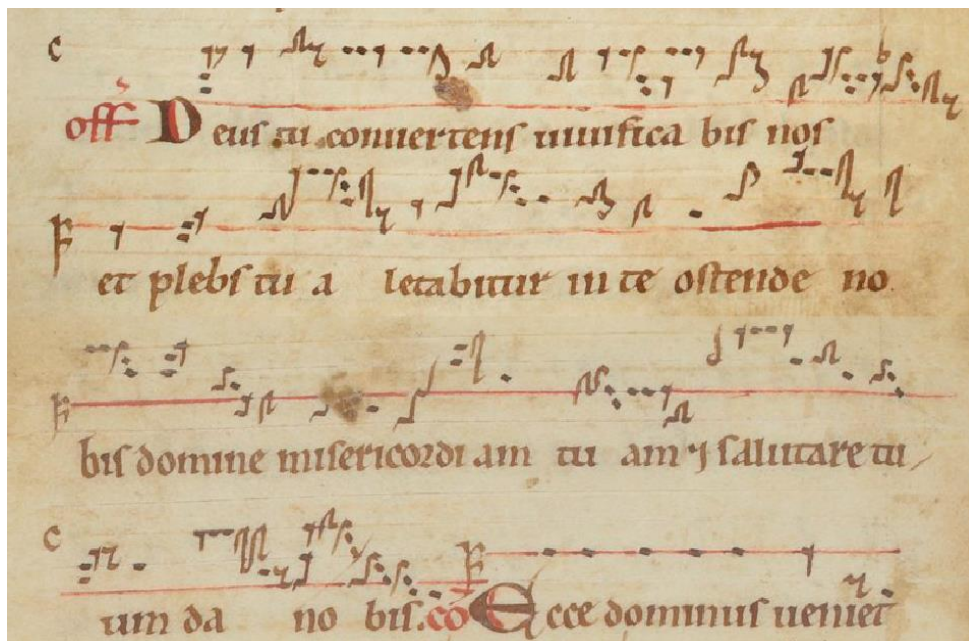 C
off Deus tu convertens vivifica bis nos
F et plebs tu a letabitur in te ostende no
F bis domine misericordi am tu am ⁊ salutare tu
C F
um da no bis. cō Ecce dominus veniet